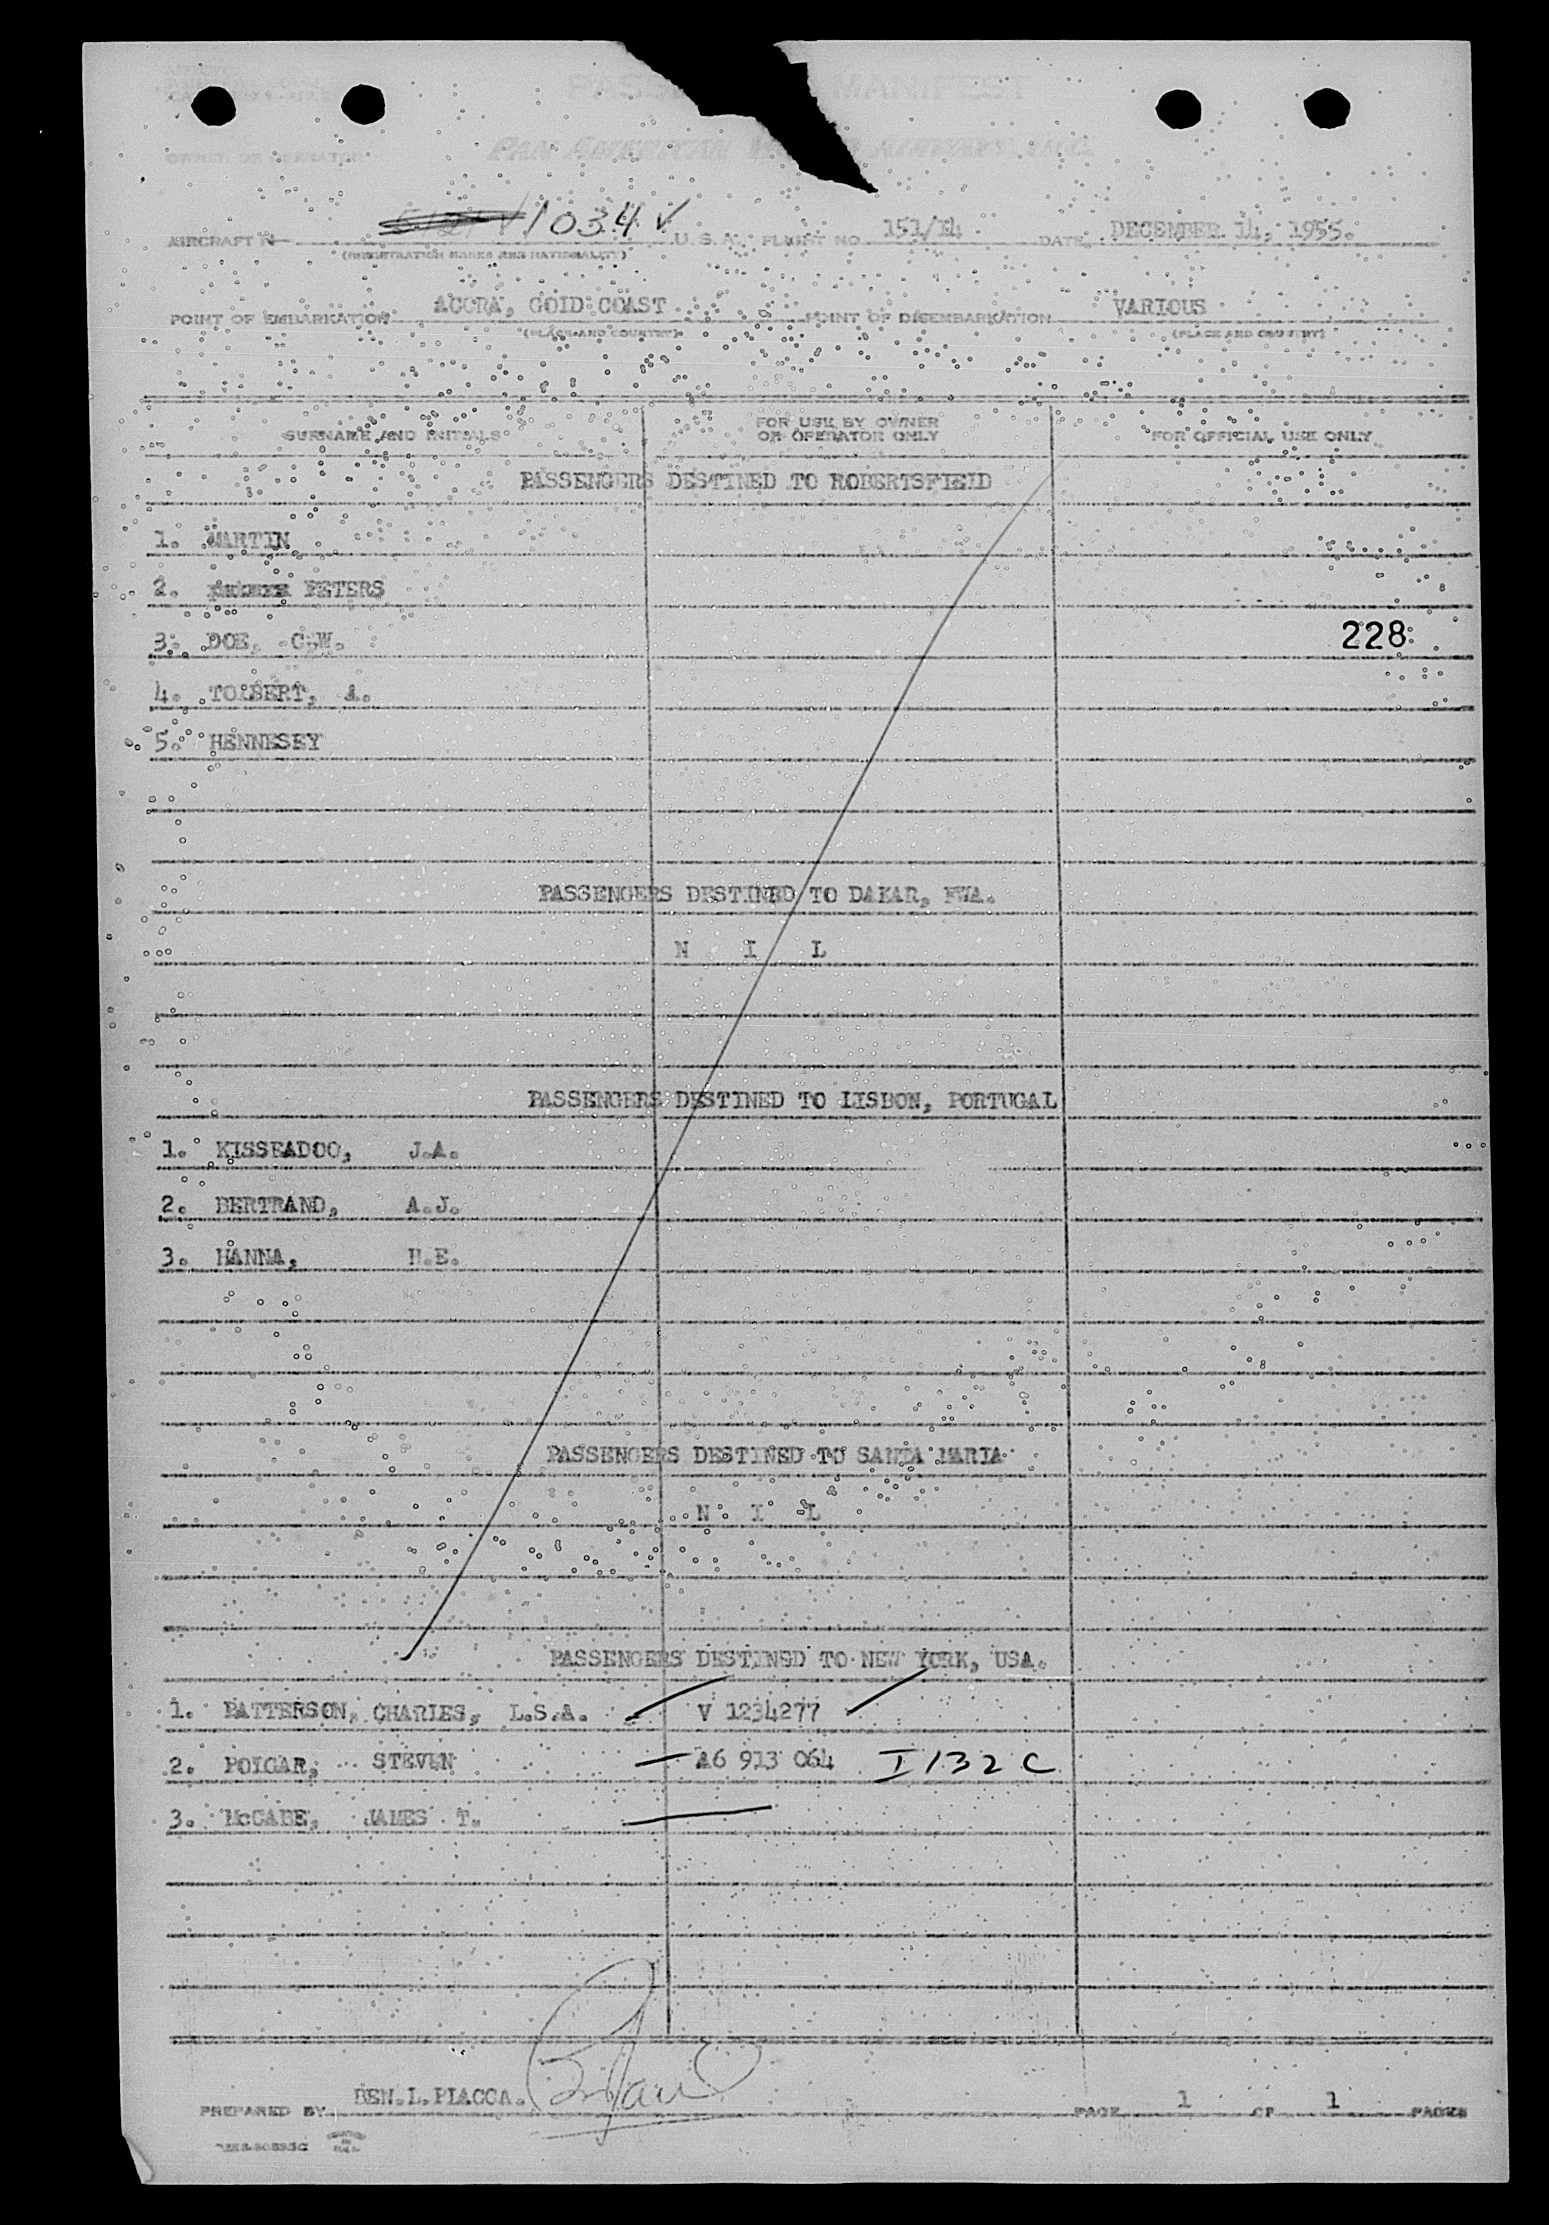 PASSENGER MANIFEST
OWNER OR OPERATOR PAN AMERICAN WORLD AIRWAYS, INC.
AIRCRAFT N 1034 V U. S. A. FLIGHT NO. 151/14 DATE DECEMBER 14, 1955.
(REGISTRATION MARKS AND NATIONALITY)
POINT OF EMBARKATION ACCRA, GOLD COAST POINT OF DISEMBARKATION VARIOUS
(PLACE AND COUNTRY) (PLACE AND COUNTRY)
SURNAME AND INITIALS FOR USE BY OWNER OR OPERATOR ONLY FOR OFFICIAL USE ONLY
PASSENGERS DESTINED TO ROBERTSFIELD
1. MARTIN
2. PETERS
3. DOE, C.W. 228
4. TOLBERT, A.
5. HENNESEY
PASSENGERS DESTINED TO DAKAR, FWA.
N I L
PASSENGERS DESTINED TO LISBON, PORTUGAL
1. KISSEADOO, J.A.
2. BERTRAND, A.J.
3. HANNA, H.E.
PASSENGERS DESTINED TO SANTA MARIA
N I L
PASSENGERS DESTINED TO NEW YORK, USA.
1. PATTERSON, CHARLES, L.S.A. V 1234277
2. POLGAR, STEVEN A6 913 064 I 132 C
3. McCABE, JAMES T.
PREPARED BY BEN.L.PIACCA. PAGE 1 OF 1 PAGES